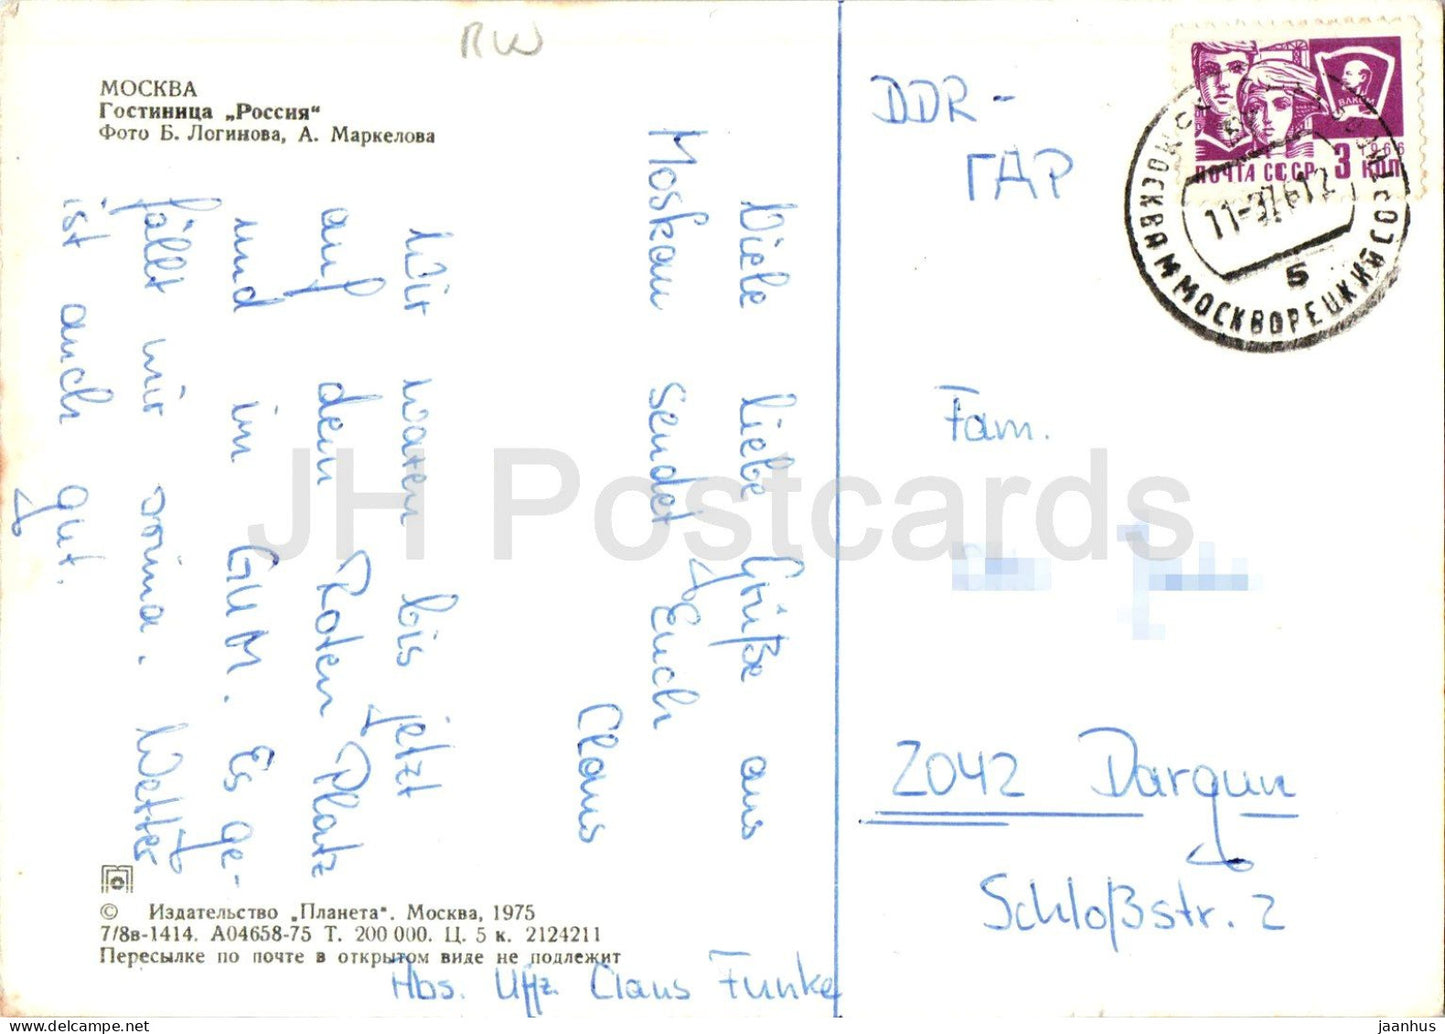 RW
МОСКВА
Гостиница „Россия"
Фото Б. Логинова, А. Маркелова
Viele liebe Grüße aus
Moskau sendet Euch
Claus
Wir waren bis jetzt
auf dem Roten Platz
und im GUM. Es ge-
fällt mir prima. Wetter
ist auch gut.
© Издательство „Планета". Москва, 1975
7/8в-1414. А04658-75 Т. 200 000. Ц. 5 к. 2124211
Пересылке по почте в открытом виде не подлежит
Abs. Uffz. Claus Funke
DDR -
ГДР
ВЛКСМ
1966
ПОЧТА СССР 3 КОП
МОСКВА М МОСКВОРЕЦКИЙ
5
Fam.
2042 Dargun
Schloßstr. 2
JH Postcards
jaanhus @ delcampe.net